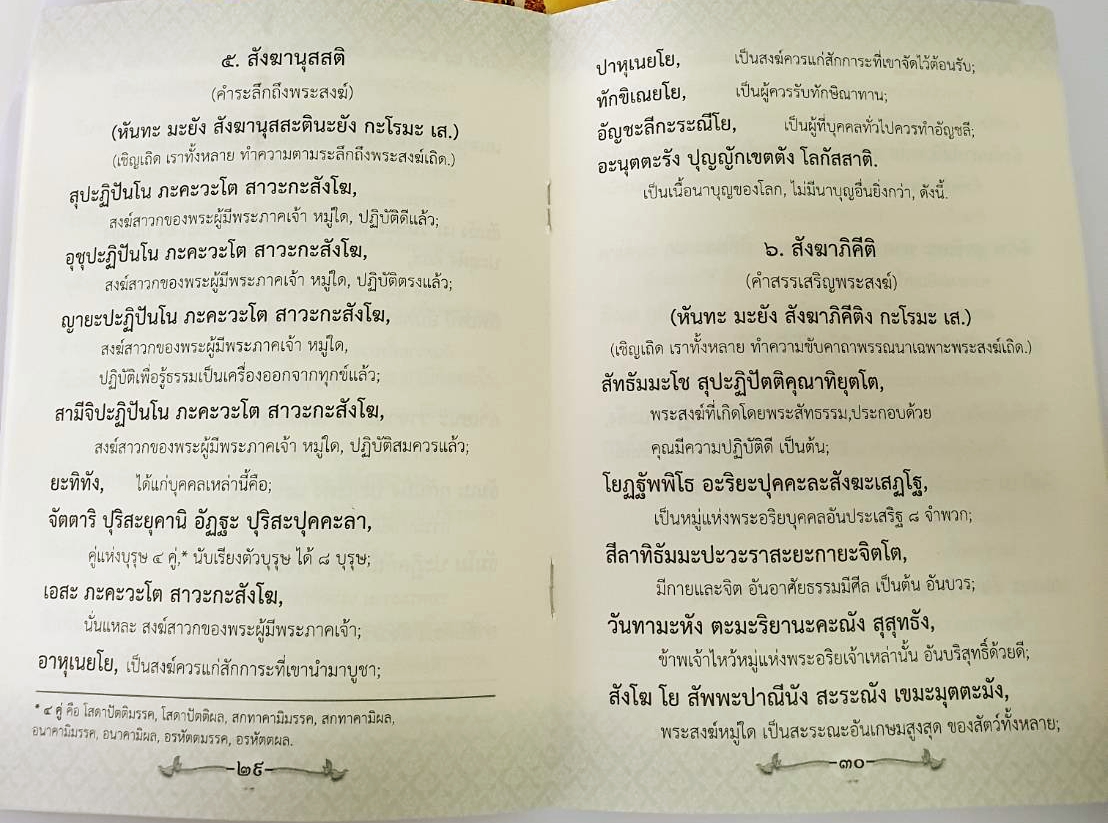 ๕. สังฆานุสสติ
(คำระลึกถึงพระสงฆ์)
(หันทะ มะยัง สังฆานุสสะตินะยัง กะโรมะ เส.)
(เชิญเถิด เราทั้งหลาย ทำความตามระลึกถึงพระสงฆ์เถิด.)
สุปะฏิปันโน ภะคะวะโต สาวะกะสังโฆ,
สงฆ์สาวกของพระผู้มีพระภาคเจ้า หมู่ใด, ปฏิบัติดีแล้ว;
อุชุปะฏิปันโน ภะคะวะโต สาวะกะสังโฆ,
สงฆ์สาวกของพระผู้มีพระภาคเจ้า หมู่ใด, ปฏิบัติตรงแล้ว;
ญายะปะฏิปันโน ภะคะวะโต สาวะกะสังโฆ,
สงฆ์สาวกของพระผู้มีพระภาคเจ้า หมู่ใด,
ปฏิบัติเพื่อรู้ธรรมเป็นเครื่องออกจากทุกข์แล้ว;
สามีจิปะฏิปันโน ภะคะวะโต สาวะกะสังโฆ,
สงฆ์สาวกของพระผู้มีพระภาคเจ้า หมู่ใด, ปฏิบัติสมควรแล้ว;
ยะทิทัง, ได้แก่บุคคลเหล่านี้คือ;
จัตตาริ ปุริสะยุคานิ อัฏฐะ ปุริสะปุคคะลา,
คู่แห่งบุรุษ ๔ คู่,* นับเรียงตัวบุรุษ ได้ ๘ บุรุษ;
เอสะ ภะคะวะโต สาวะกะสังโฆ,
นั่นแหละ สงฆ์สาวกของพระผู้มีพระภาคเจ้า;
อาหุเนยโย, เป็นสงฆ์ควรแก่สักการะที่เขานำมาบูชา;
* ๔ คู่ คือ โสดาปัตติมรรค, โสดาปัตติผล, สกทาคามิมรรค, สกทาคามิผล,
อนาคามิมรรค, อนาคามิผล, อรหัตตมรรค, อรหัตตผล.
๒๙
ปาหุเนยโย, เป็นสงฆ์ควรแก่สักการะที่เขาจัดไว้ต้อนรับ;
ทักขิเณยโย, เป็นผู้ควรรับทักษิณาทาน;
อัญชะลีกะระณีโย, เป็นผู้ที่บุคคลทั่วไปควรทำอัญชลี;
อะนุตตะรัง ปุญญักเขตตัง โลกัสสาติ.
เป็นเนื้อนาบุญของโลก, ไม่มีนาบุญอื่นยิ่งกว่า, ดังนี้.
๖. สังฆาภิคีติ
(คำสรรเสริญพระสงฆ์)
(หันทะ มะยัง สังฆาภิคีติง กะโรมะ เส.)
(เชิญเถิด เราทั้งหลาย ทำความขับคาถาพรรณนาเฉพาะพระสงฆ์เถิด.)
สัทธัมมะโช สุปะฏิปัตติคุณาทิยุตโต,
พระสงฆ์ที่เกิดโดยพระสัทธรรม,ประกอบด้วย
คุณมีความปฏิบัติดี เป็นต้น;
โยฏฐัพพิโธ อะริยะปุคคะละสังฆะเสฏโฐ,
เป็นหมู่แห่งพระอริยบุคคลอันประเสริฐ ๘ จำพวก;
สีลาทิธัมมะปะวะราสะยะกายะจิตโต,
มีกายและจิต อันอาศัยธรรมมีศีล เป็นต้น อันบวร;
วันทามะหัง ตะมะริยานะคะณัง สุสุทธัง,
ข้าพเจ้าไหว้หมู่แห่งพระอริยเจ้าเหล่านั้น อันบริสุทธิ์ด้วยดี;
สังโฆ โย สัพพะปาณีนัง สะระณัง เขมะมุตตะมัง,
พระสงฆ์หมู่ใด เป็นสะระณะอันเกษมสูงสุด ของสัตว์ทั้งหลาย;
๓๐